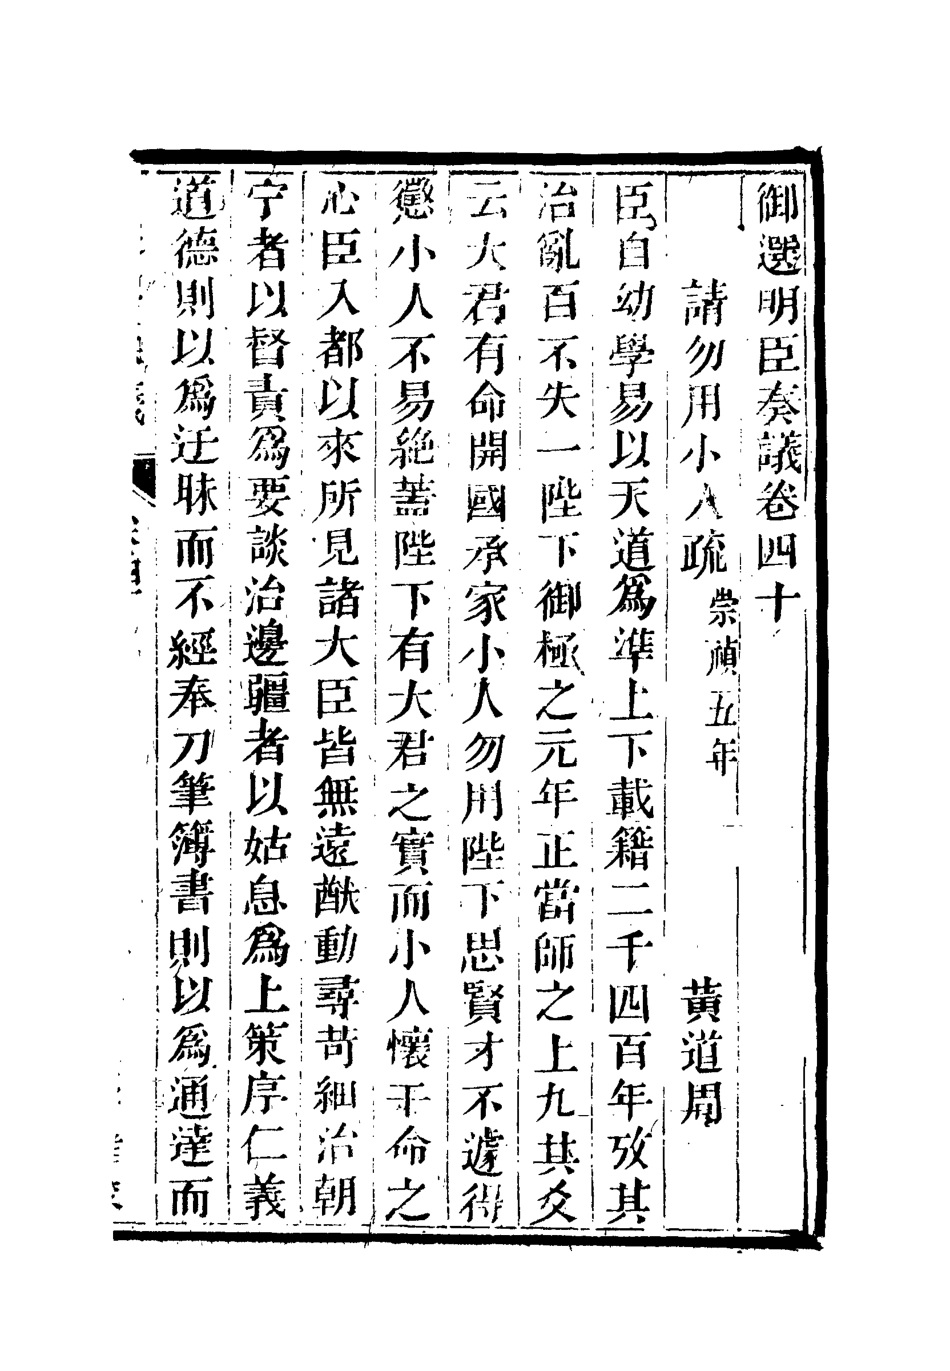 御選明臣奏議卷四十
請勿用小人疏崇禎五年 黃道周
臣自幼學易以天道爲準上下載籍二千四百年攷其
治亂百不失一陛下御極之元年正當師之上九其爻
云大君有命開國承家小人勿用陛下思賢才不遽得
懲小人不易絶蓋陛下有大君之實而小人懷干命之
心臣入都以來所見諸大臣皆無遠猷動尋苛細治朝
宁者以督責爲要談治邊疆者以姑息爲上策序仁義
道德則以爲迂昧而不經奉刀筆簿書則以爲通達而